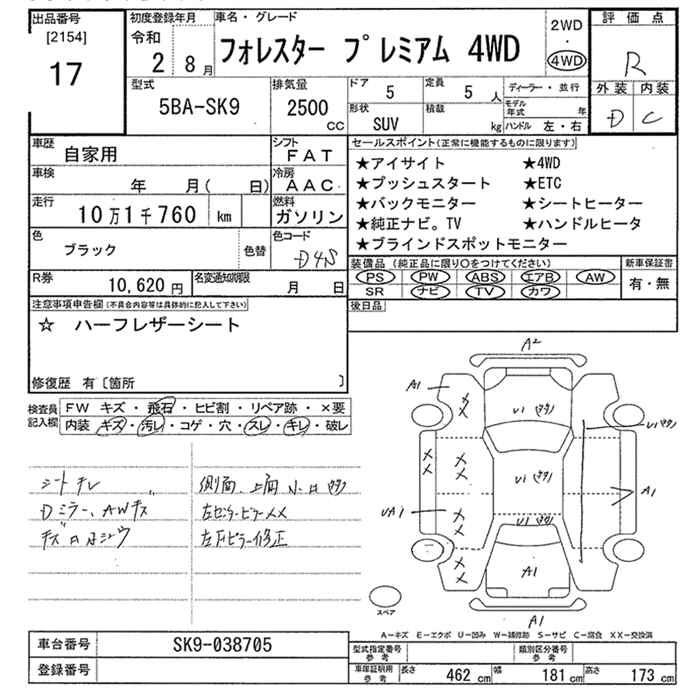 出品番号
[2154]
17
初度登録年月
令和
2年 8月
車名・グレード
フォレスター プレミアム 4WD
2WD
・
4WD
評価点
R
外装 内装
D C
型式
5BA-SK9
排気量
2500
cc
ドア
5
定員
5人
形状
SUV
積載
kg
ディーラー・並行
モデル年式 年
ハンドル 左・右
車歴
自家用
シフト
FAT
車検
年 月( 日)
冷房
AAC
走行
10万1千760 km
燃料
ガソリン
色
ブラック
色替
色コード
D4S
R券
10,620円
名変通知期限
月 日
セールスポイント(正常に機能するものに限ります)
★アイサイト ★4WD
★プッシュスタート ★ETC
★バックモニター ★シートヒーター
★純正ナビ。TV ★ハンドルヒータ
★ブラインドスポットモニター
装備品(純正品に限り○をつけてください)
PS PW ABS エアB AW
SR ナビ TV カワ
新車保証書
有・無
後日品
注意事項申告欄(不具合内容等は具体的に記入して下さい)
☆ ハーフレザーシート
修復歴 有〔箇所 〕
検査員記入欄
FW キズ・飛石・ヒビ割・リペア跡・×要
内装 キズ・汚レ・コゲ・穴・スレ・キレ・破レ
シートキレ
Dミラー、AWキズ
側面、上面 小
左センターピラー××
左Fピラー修正
A2
A1
U1
U1
U1
U1
A1
UA1
A1
A1
スペア
A-キズ E-エクボ U-凹み W-補修跡 S-サビ C-腐食 XX-交換済
車台番号
SK9-038705
登録番号
型式指定番号
参考
類別区分番号
参考
車庫証明用
参考
長さ
462 cm
幅
181 cm
高さ
173 cm